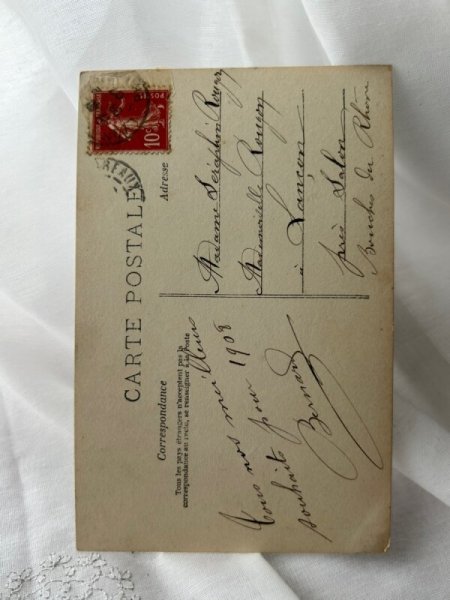 CARTE POSTALE
Correspondance
Tous les pays étrangers n'acceptent pas la
correspondance au recto, se renseigner à la Poste
Tous nos meilleurs
souhaits pour 1908
Bernard
Adresse
Madame Séraphin Rougon
Mademoiselle Rougon
à Lançon
près Salon
Bouches du Rhône
POSTES
10c